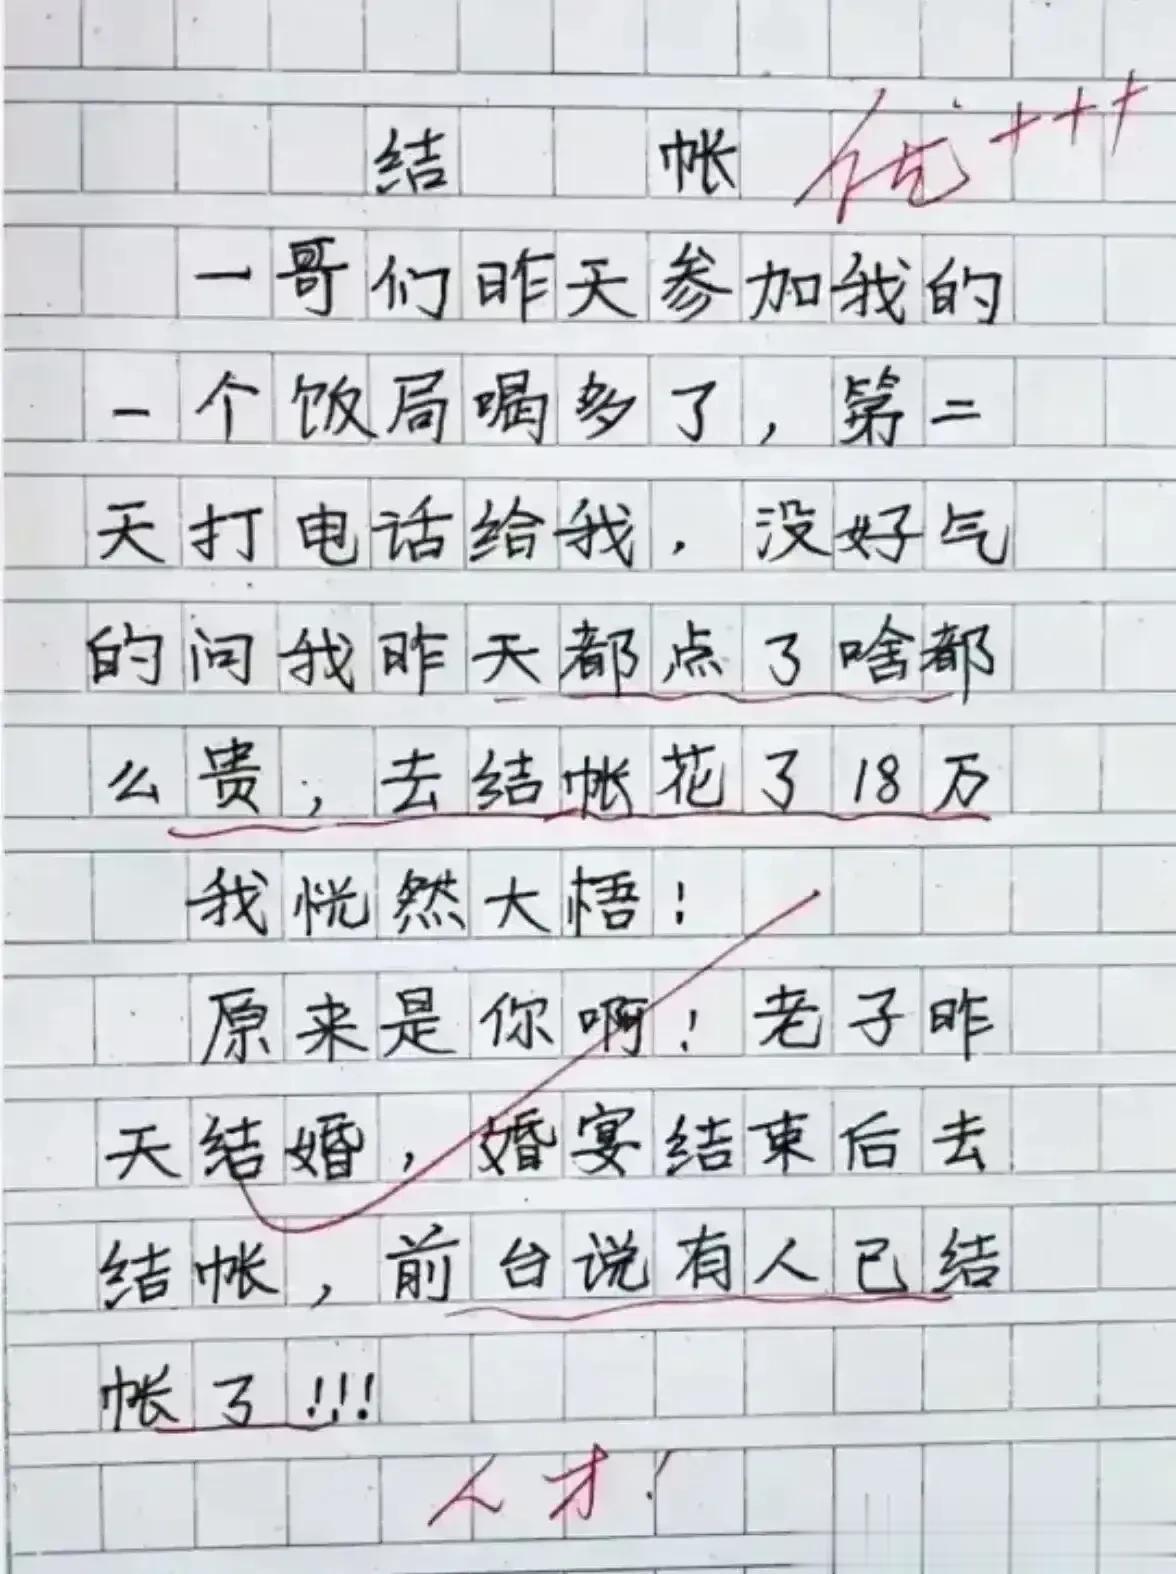 结帐 优+++
一哥们昨天参加我的
一个饭局喝多了，第二
天打电话给我，没好气
的问我昨天都点了啥都
么贵，去结帐花了18万
我恍然大悟！
原来是你啊！老子昨
天结婚，婚宴结束后去
结帐，前台说有人已结
帐了!!!
人才！